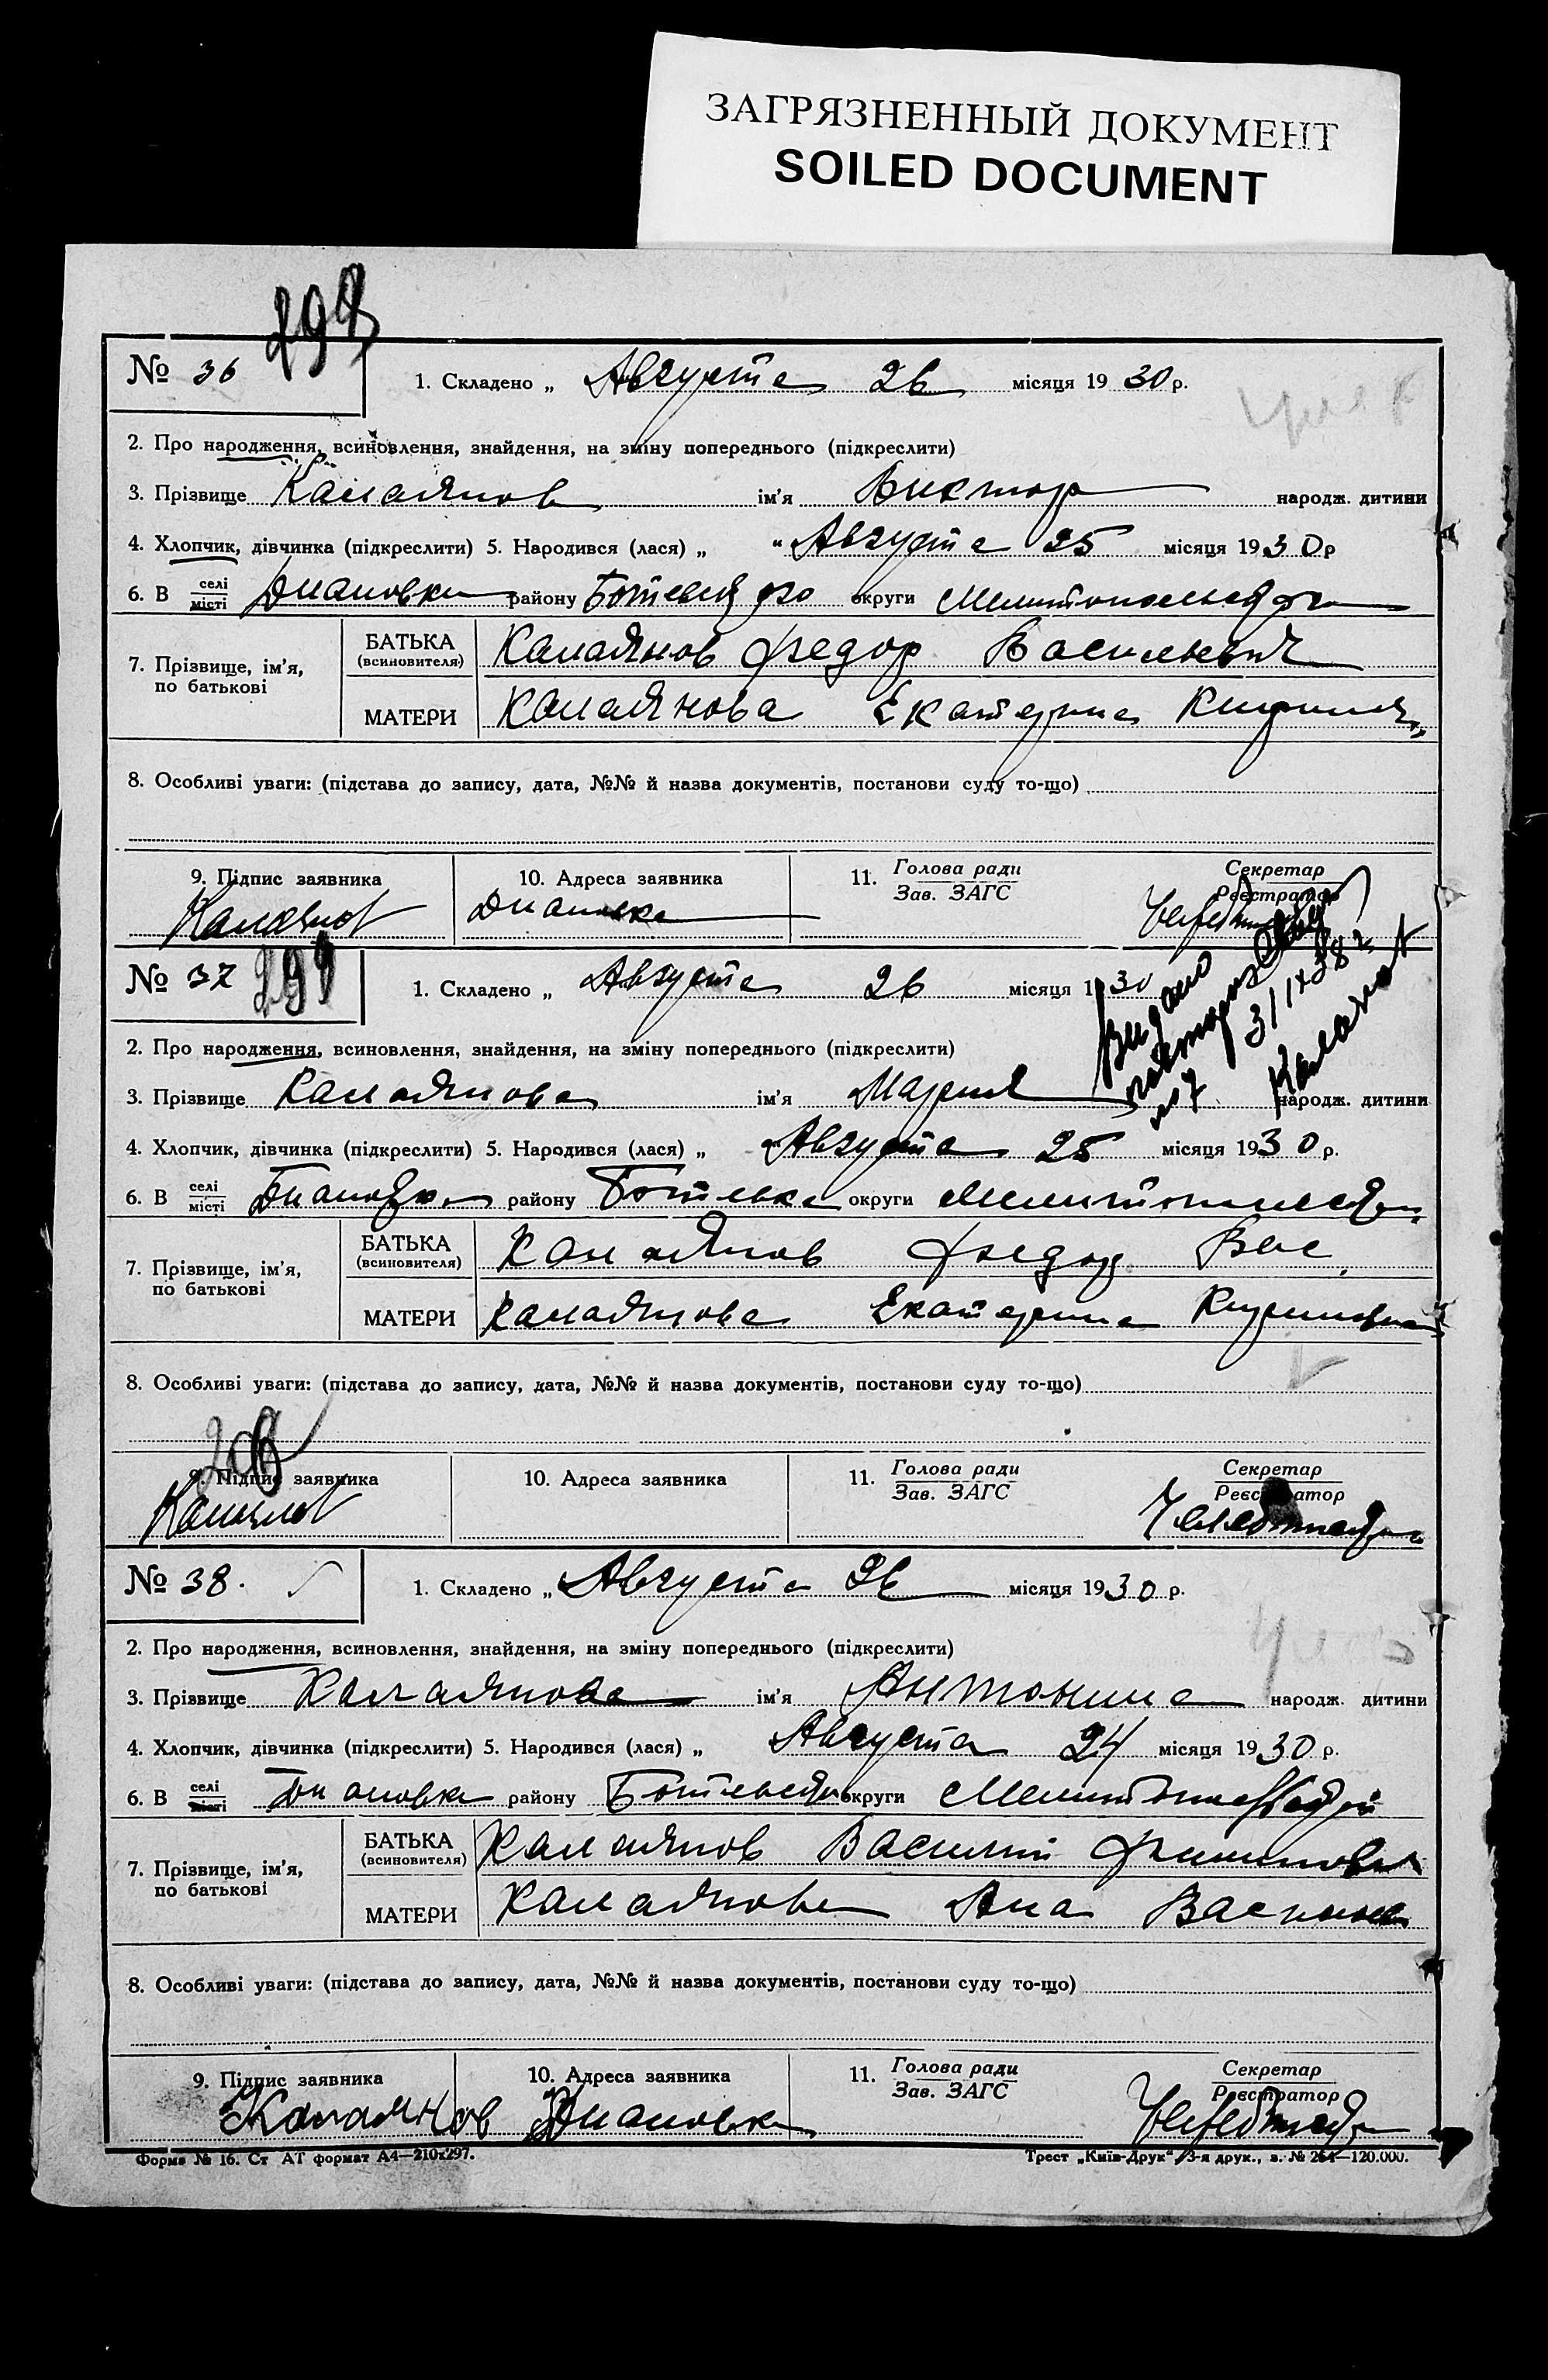 ЗАГРЯЗНЕННЫЙ ДОКУМЕНТ
SOILED DOCUMENT
№ 36
1. Складено „ Августа 26 місяця 1930 р.
2. Про народження, всиновлення, знайдення, на зміну попереднього (підкреслити)
3. Прізвище Калаянов ім’я Виктор народж. дитини
4. Хлопчик, дівчинка (підкреслити) 5. Народився (лася) „ Августа 25 місяця 1930 р
6. В селі місті Диановка району округи
7. Прізвище, ім’я, по батькові
БАТЬКА (всиновителя) Калаянов Федор Васильевич
МАТЕРИ Калаянова Екатерина
8. Особливі уваги: (підстава до запису, дата, №№ й назва документів, постанови суду то-що)
9. Підпис заявника 10. Адреса заявника 11. Голова ради Зав. ЗАГС Секретар Реєстратор
Калаянов Диановка
№ 37
1. Складено „ Августа 26 місяця 1930
2. Про народження, всиновлення, знайдення, на зміну попереднього (підкреслити)
3. Прізвище Калаянова ім’я Мария народж. дитини
4. Хлопчик, дівчинка (підкреслити) 5. Народився (лася) „ Августа 25 місяця 1930 р.
6. В селі місті Диановка району округи
7. Прізвище, ім’я, по батькові
БАТЬКА (всиновителя) Калаянов Федор Вас.
МАТЕРИ Калаянова Екатерина
8. Особливі уваги: (підстава до запису, дата, №№ й назва документів, постанови суду то-що)
9. Підпис заявника 10. Адреса заявника 11. Голова ради Зав. ЗАГС Секретар Реєстратор
Калаянов
№ 38.
1. Складено „ Августа 26 місяця 1930 р.
2. Про народження, всиновлення, знайдення, на зміну попереднього (підкреслити)
3. Прізвище Калаянова ім’я Антонина народж. дитини
4. Хлопчик, дівчинка (підкреслити) 5. Народився (лася) „ Августа 24 місяця 1930 р.
6. В селі місті Диановка району округи
7. Прізвище, ім’я, по батькові
БАТЬКА (всиновителя) Калаянов Василий
МАТЕРИ Калаянова Ана
8. Особливі уваги: (підстава до запису, дата, №№ й назва документів, постанови суду то-що)
9. Підпис заявника 10. Адреса заявника 11. Голова ради Зав. ЗАГС Секретар Реєстратор
Калаянов Диановка
Форма № 16. Ст АТ формат А4—210х297.
Трест „Київ-Друк“, 3-я друк., з. № 264—120.000.